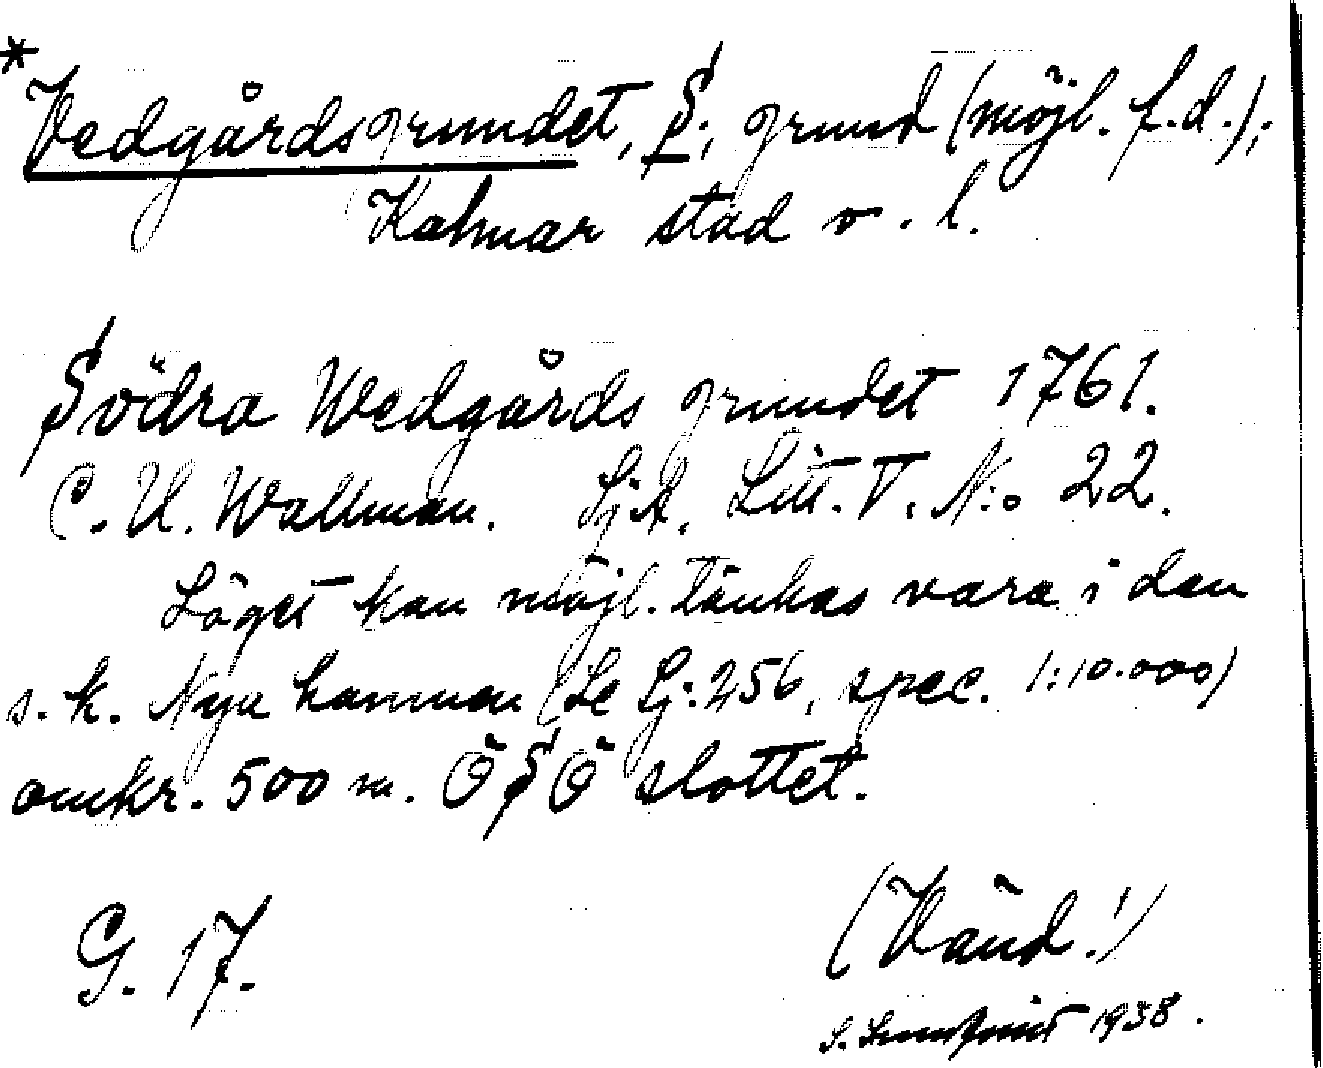 *Vedgårdsgrundet, S.; grund (möjl. f.d.);
Kalmar stad o. l.
Södra Wedgårds grundet 1761.
C. U. Wallman. Sj.A. Litt. T. N:o 22.
Läget kan möjl. tänkas vara i den
s.k. Nya hamnen (Se Sj: 256, spec. 1:10.000)
omkr. 500 m. ÖSÖ slottet.
G. 17.
(Vänd!)
S. 1938.